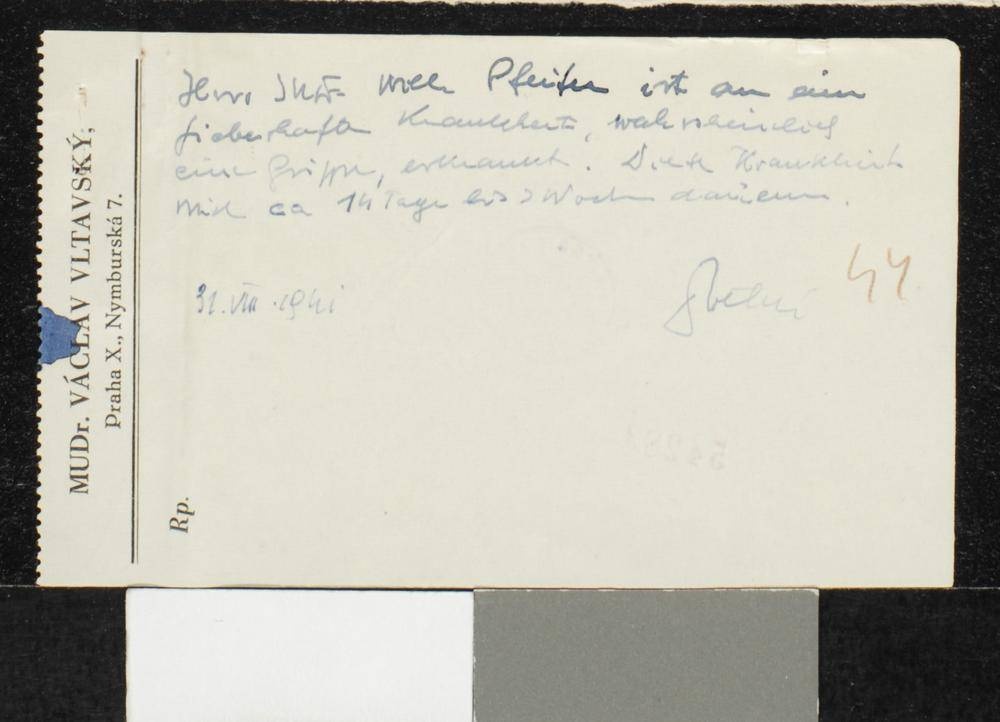 MUDr. VÁCLAV VLTAVSKÝ,
Praha X., Nymburská 7.
Rp.
Herr Willi Pfeifer ist an ein
fieberhafte Krankheit, wahrscheinlich
eine Grippe, erkrankt. Diese Krankheit
wird ca 14 Tage bis 3 Wochen dauern.
31. VIII. 1941
44